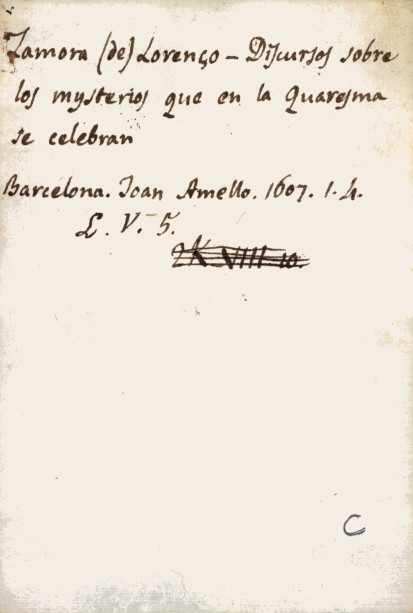 Zamora (de) Lorenço - Discursos sobre
los mysterios que en la Quaresma
se celebran
Barcelona. Joan Amello. 1607. 1. 4.
L. V. 5.
2K VIII 10.
C